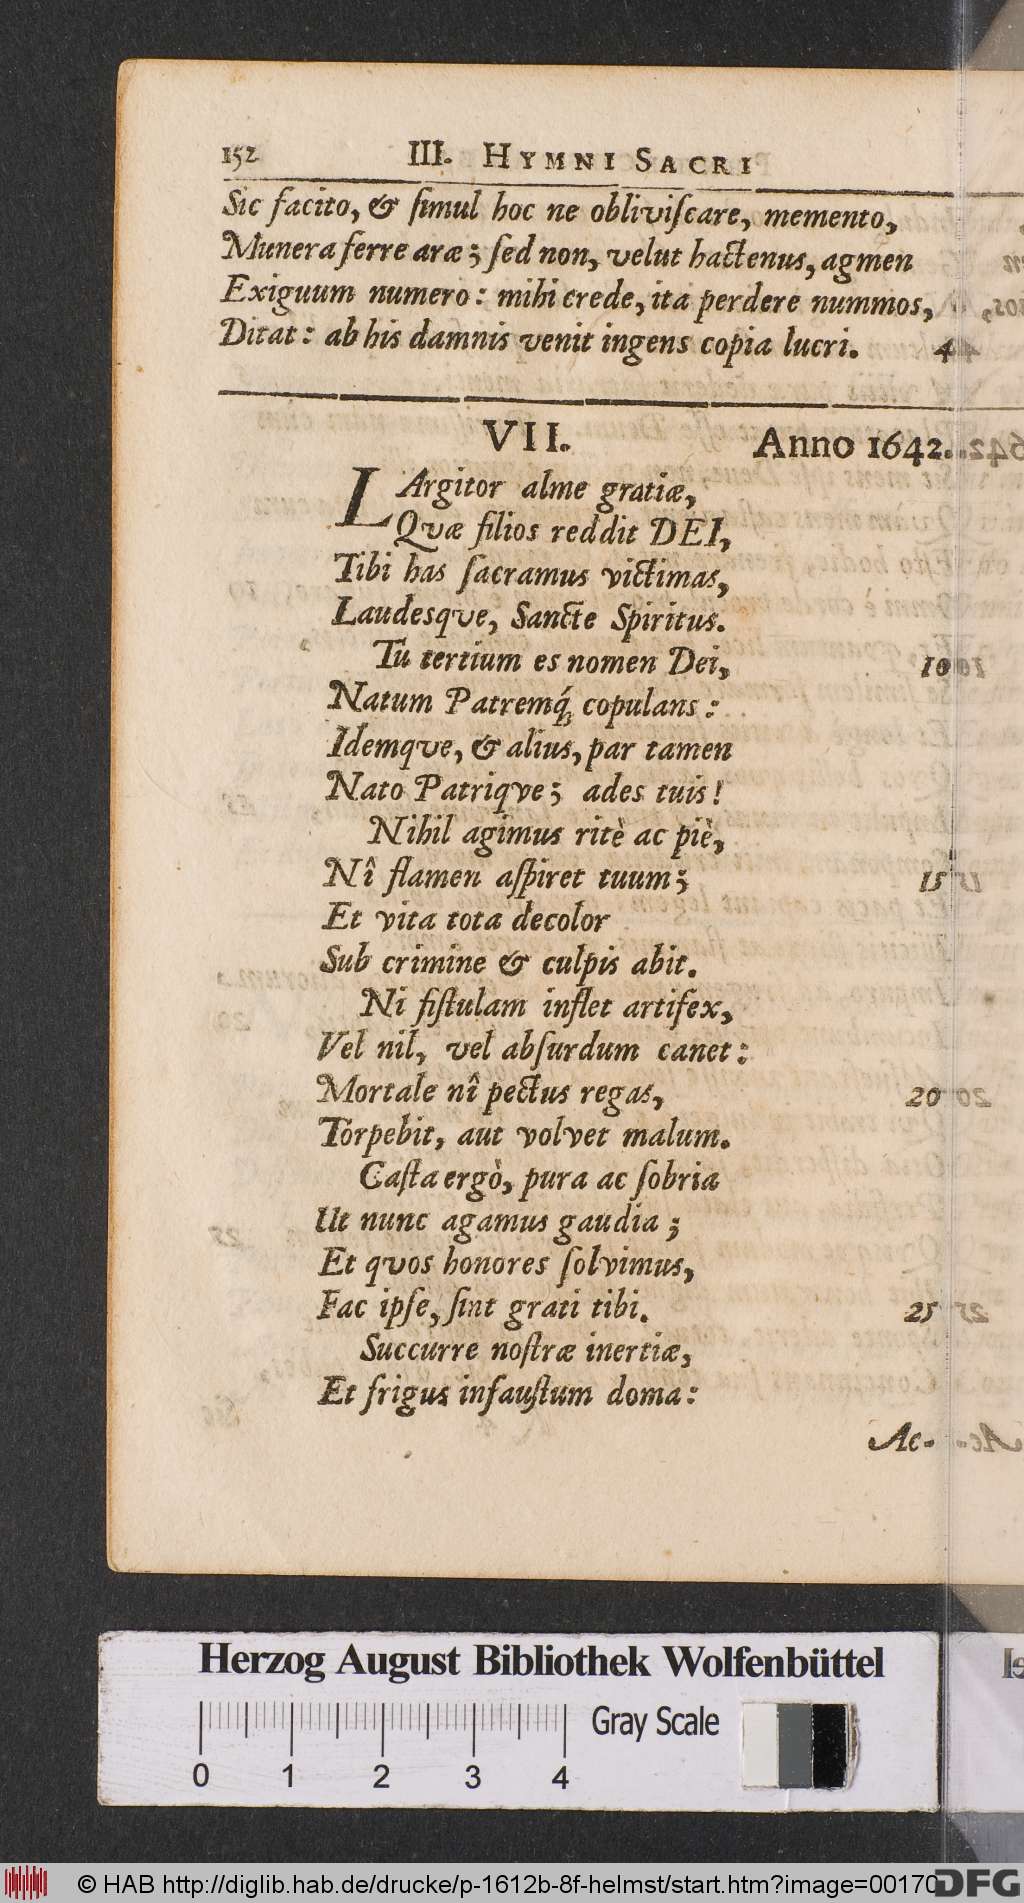 152 III. HYMNI SACRI
Sic facito, & ſimul hoc ne obliviſcare, memento,
Munera ferre aræ; ſed non, velut hactenus, agmen
Exiguum numero: mihi crede, ita perdere nummos,
Ditat: ab his damnis venit ingens copia lucri. 44
VII. Anno 1642.
LArgitor alme gratiæ,
Qvæ filios reddit DEI,
Tibi has ſacramus victimas,
Laudesqve, Sancte Spiritus.
Tu tertium es nomen Dei, 10
Natum Patremq́; copulans:
Idemqve, & alius, par tamen
Nato Patriqve; ades tuis!
Nihil agimus ritè ac piè,
Nî flamen aſpiret tuum; 15
Et vita tota decolor
Sub crimine & culpis abit.
Ni fiſtulam inflet artifex,
Vel nil, vel abſurdum canet:
Mortale nî pectus regas, 20
Torpebit, aut volvet malum.
Caſta ergò, pura ac ſobria
Ut nunc agamus gaudia;
Et qvos honores ſolvimus,
Fac ipſe, ſint grati tibi. 25
Succurre noſtræ inertiæ,
Et frigus infauſtum doma:
Ac-
Herzog August Bibliothek Wolfenbüttel
Gray Scale
0 1 2 3 4
© HAB http://diglib.hab.de/drucke/p-1612b-8f-helmst/start.htm?image=00170
DFG